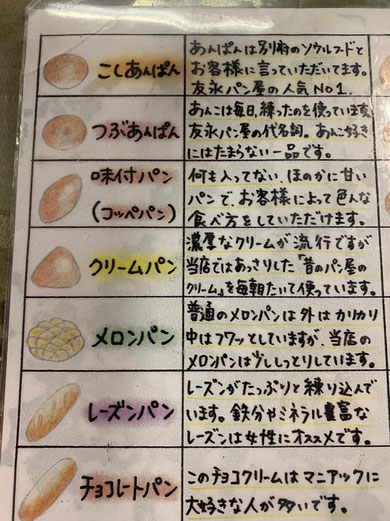 こしあんぱん
あんぱんは別府のソウルフードと
お客様に言っていただいてます。
友永パン屋の人気No1.
つぶあんぱん
あんこは毎日、練ったのを使っています
友永パン屋の代名詞。あんこ好き
にはたまらない一品です。
味付パン
(コッペパン)
何も入ってない、ほのかに甘い
パンで、お客様によって色んな
食べ方をしていただけます。
クリームパン
濃厚なクリームが流行ですが
当店ではあっさりした「昔のパン屋の
クリーム」を毎朝たいて使っています。
メロンパン
普通のメロンパンは外はカリカリ
中はフワッとしていますが、当店の
メロンパンは少ししっとりしています。
レーズンパン
レーズンがたっぷりと練り込んで
います。鉄分やミネラル豊富な
レーズンは女性にオススメです。
チョコレートパン
このチョコクリームはマニアックに
大好きな人が多いです。